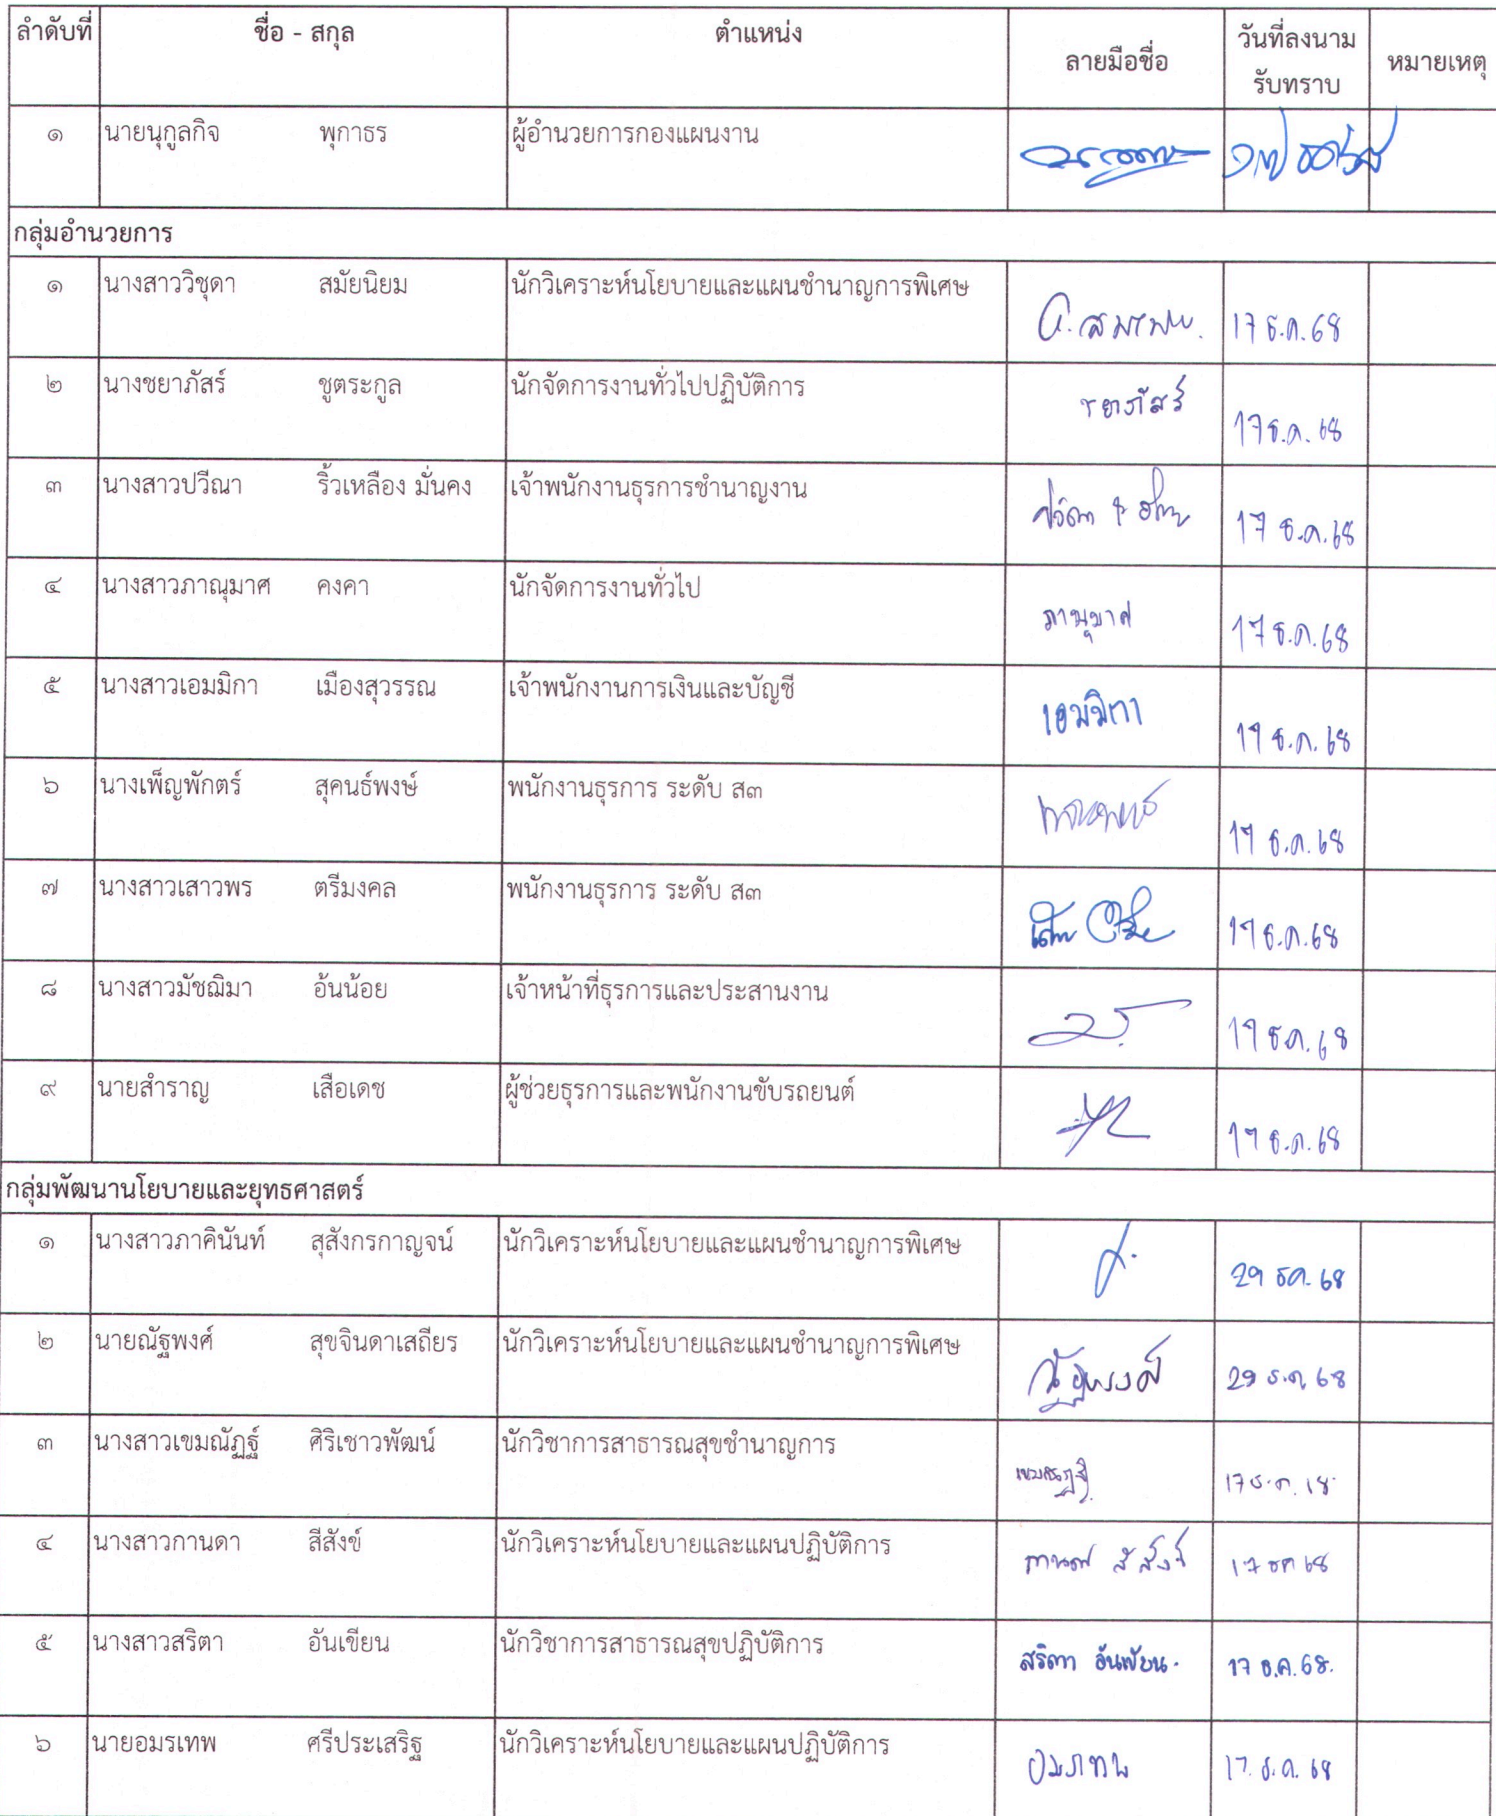 ลำดับที่ ชื่อ - สกุล ตำแหน่ง ลายมือชื่อ วันที่ลงนาม รับทราบ หมายเหตุ
๑ นายนุกูลกิจ พุกาธร ผู้อำนวยการกองแผนงาน
กลุ่มอำนวยการ
๑ นางสาววิชุดา สมัยนิยม นักวิเคราะห์นโยบายและแผนชำนาญการพิเศษ 17 ธ.ค. 68
๒ นางชยาภัสร์ ชูตระกูล นักจัดการงานทั่วไปปฏิบัติการ ชยาภัสร์ 17 ธ.ค. 68
๓ นางสาวปวีณา ริ้วเหลือง มั่นคง เจ้าพนักงานธุรการชำนาญงาน 17 ธ.ค. 68
๔ นางสาวภาณุมาศ คงคา นักจัดการงานทั่วไป ภาณุมาศ 17 ธ.ค. 68
๕ นางสาวเอมมิกา เมืองสุวรรณ เจ้าพนักงานการเงินและบัญชี เอมมิกา 17 ธ.ค. 68
๖ นางเพ็ญพักตร์ สุคนธ์พงษ์ พนักงานธุรการ ระดับ ส๓ 17 ธ.ค. 68
๗ นางสาวเสาวพร ตรีมงคล พนักงานธุรการ ระดับ ส๓ 17 ธ.ค. 68
๘ นางสาวมัชฌิมา อ้นน้อย เจ้าหน้าที่ธุรการและประสานงาน 17 ธ.ค. 68
๙ นายสำราญ เสือเดช ผู้ช่วยธุรการและพนักงานขับรถยนต์ 17 ธ.ค. 68
กลุ่มพัฒนานโยบายและยุทธศาสตร์
๑ นางสาวภาคินันท์ สุสังกรกาญจน์ นักวิเคราะห์นโยบายและแผนชำนาญการพิเศษ 29 ธค. 68
๒ นายณัฐพงศ์ สุขจินดาเสถียร นักวิเคราะห์นโยบายและแผนชำนาญการพิเศษ ณัฐพงศ์ 29 ธ.ค. 68
๓ นางสาวเขมณัฏฐ์ ศิริเชาวพัฒน์ นักวิชาการสาธารณสุขชำนาญการ เขมณัฏฐ์ 17 ธ.ค. 68
๔ นางสาวกานดา สีสังข์ นักวิเคราะห์นโยบายและแผนปฏิบัติการ กานดา สีสังข์ 17 ธค 68
๕ นางสาวสริตา อ้นเขียน นักวิชาการสาธารณสุขปฏิบัติการ สริตา อ้นเขียน. 17 ธ.ค. 68.
๖ นายอมรเทพ ศรีประเสริฐ นักวิเคราะห์นโยบายและแผนปฏิบัติการ อมรเทพ 17. ธ.ค. 68